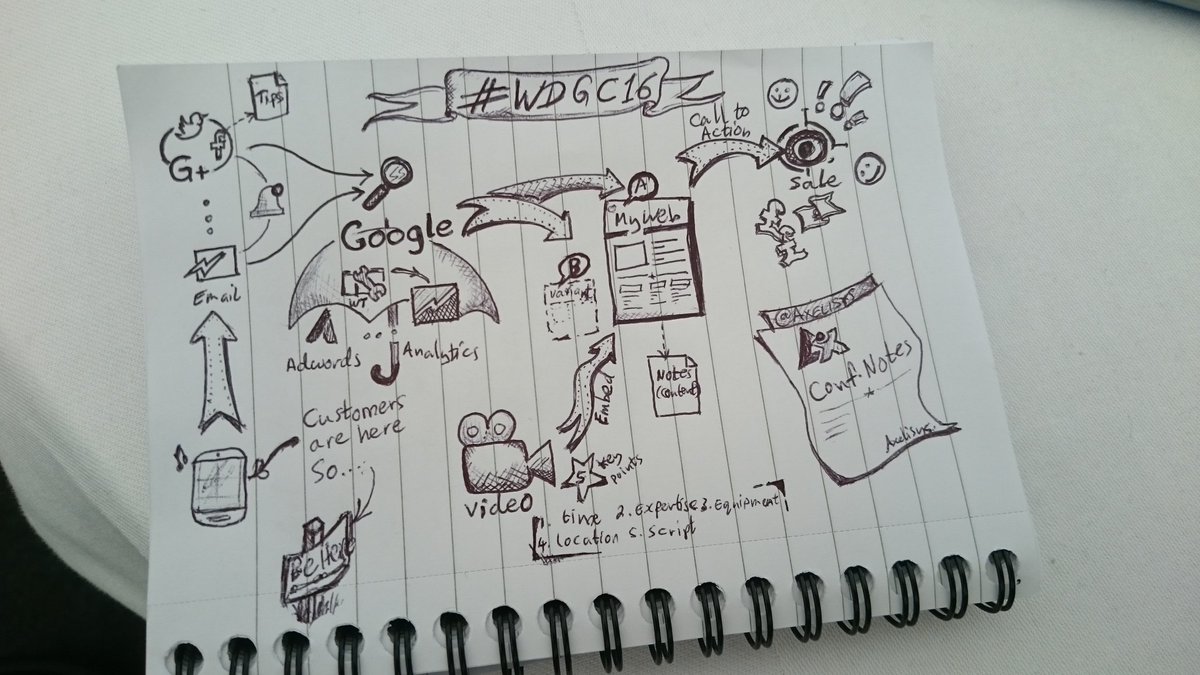 #WDGC16
Tips
G+
Email
Google
WT
Adwords
Analytics
Customers
are here
So....
Be Here
A
My Web
B
Variant
Notes
(content)
Embed
Video
5
key
points
1. time 2. Expertise 3. Equipment
4. location 5. script
Call to
Action
Sale
@AXELISYS
Conf. Notes